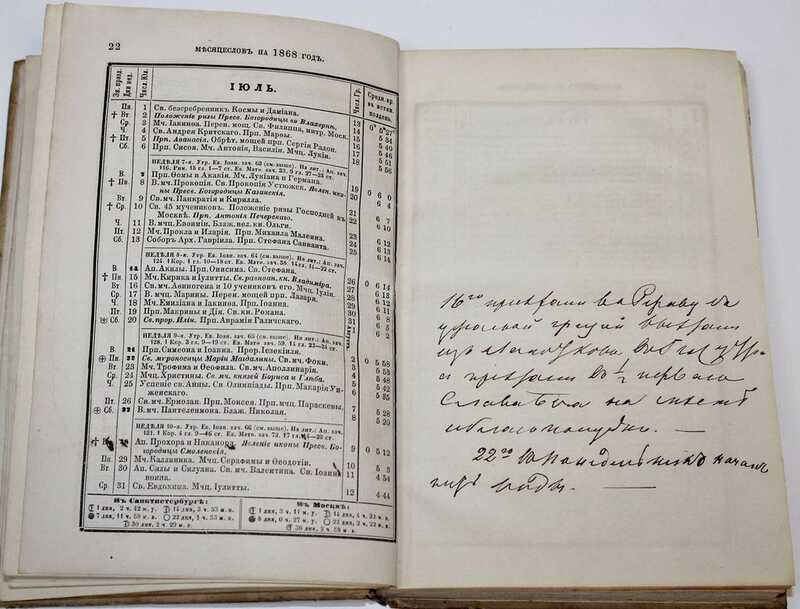 22
МѢСЯЦЕСЛОВЪ НА 1868 ГОДЪ.
Зн. празд.
Дни нед.
Числ. Юл.
ІЮЛЬ.
Числ. Гр.
Средн. вр.
въ истин.
полдень.
Пн. 1 Св. безсребренник. Космы и Даміана. 13 0ч 5м 27с
† Вт 2 Положеніе ризы Пресв. Богородицы во Влахернѣ. 14 5 34
Ср. 3 Мч. Іакинѳа. Перен. мощ. Св. Филиппа, митр. Моск. 15 5 40
Ч. 4 Св. Андрея Критскаго. Прп. Марѳы. 16 5 46
† Пт 5 Прп. Аѳанасія. Обрѣт. мощей прп. Сергія Радон. 17 5 51
Сб. 6 Прп. Сисоя. Мч. Антонія, Василія. Мчц. Лукіи. 18 5 56
НЕДѢЛЯ 7-я. Утр. Ев. Іоан. зач. 63 (см. выше). На лит.: Ап. зач.
116. Рим. 15 гл. 1—7 ст. Ев. Матѳ. зач. 33, 9 гл. 27—35 ст.
В. 7 Прп. Ѳомы и Акакія. Мч. Лукіана и Германа. 19 0 6 0
† Пн. 8 В. мч. Прокопія. Св. Прокопія Устюжск. Явлен. ико- 20 6 4
ны Пресв. Богородицы Казанскія.
Вт 9 Св. мч. Панкратія и Кирилла. 21 6 7
† Ср. 10 Св. 45 мучеников. Положеніе ризы Господней въ 22 6 10
Москвѣ. Прп. Антонія Печерскаго.
Ч. 11 В. мчц. Евѳиміи. Блаж. вел. кн. Ольги. 23 6 12
Пт 12 Мч. Прокла и Иларія. Прп. Михаила Малеина. 24 6 13
Сб. 13 Соборъ Арх. Гавріила. Прп. Стефана Савваита. 25 6 14
НЕДѢЛЯ 8-я. Утр. Ев. Іоан. зач. 64 (см. выше). На лит.: Ап. зач.
124. 1 Кор. 1 гл. 10—18 ст. Ев. Матѳ. зач. 58. 14 гл. 14—22 ст.
В. 14 Ап. Акилы. Прп. Онисима. Св. Стефана. 26 0 6 14
† Пн. 15 Мч. Кирика и Іулитты. Св. равноап. кн. Владиміра. 27 6 13
Вт 16 Св. мч. Аѳиногена и 10 учениковъ его. Мчц. Іуліи. 28 6 12
Ср. 17 В. мчц. Марины. Перен. мощей прп. Лазаря. 29 6 11
Ч. 18 Мч. Емиліана и Іакинѳа. Прп. Іоанна. 30 6 8
Пт. 19 Прп. Макрины и Дія. Св. кн. Романа. 31 6 5
Сб. 20 Св. прор. Иліи. Прп. Аврамія Галичскаго. 1 6 2
Августъ.
НЕДѢЛЯ 9-я. Утр. Ев. Іоан. зач. 65 (см. выше). На лит.: Ап. зач.
128, 1 Кор. 3 гл. 9—19 ст. Ев. Матѳ. зач. 59, 14 гл. 22—34 ст.
В. 21 Прп. Симеона и Іоанна. Прор. Іезекіиля. 2 0 5 58
Пн. 22 Св. мѵроносицы Маріи Магдалины. Св. мч. Фоки. 3 5 53
Вт 23 Мч. Трофима и Ѳеофила. Св. мч. Аполлинарія. 4 5 48
Ср. 24 Мчц. Христины. Св. мч. князей Бориса и Глѣба. 5 5 42
Ч. 25 Успеніе св. Анны. Св. Олимпіады. Прп. Макарія Ун- 6 5 35
женскаго.
Пт. 26 Св. мч. Ермолая. Прп. Моисея. Прп. мчц. Параскевы. 7 5 28
⊕ Сб. 27 В. мч. Пантелеимона. Блаж. Николая. 8 5 20
НЕДѢЛЯ 10-я. Утр. Ев. Іоан. зач. 66 (см. выше). На лит.: Ап. зач.
131. 1 Кор. 4 гл. 9—16 ст. Ев. Матѳ. зач. 72. 17 гл. 14—23 ст.
† В. 28 Ап. Прохора и Никанора. Явленіе иконы Пресв. Бо- 9 0 5 12
городицы Смоленскія.
Пн. 29 Мч. Каллиника. Мчц. Серафимы и Ѳеодотіи. 10 5 3
Вт 30 Ап. Силы и Силуана. Св. мч. Валентина. Св. Іоанна 11 4 54
воина.
Ср. 31 Св. Евдокима. Мчц. Іулитты. 12 4 44
Въ Санктпетербургѣ:
1 дня, 2 ч. 42 м. у. 14 дня, 3 ч. 53 м. в.
7 дня, 11 ч. 58 м. в. 22 дня, 1 ч. 53 м. в.
30 дня, 2 ч. 29 м. в.
Въ Москвѣ:
1 дня, 3 ч. 11 м. у. 14 дня, 4 ч. 23 м. в.
8 дня, 0 ч. 27 м. у. 22 дня, 2 ч. 22 м. в.
30 дня, 2 ч. 58 м. в.
16го пріѣхали въ
выѣхали
пріѣхали въ ½ перваго
Слава Богу на
благополучно. —
22го